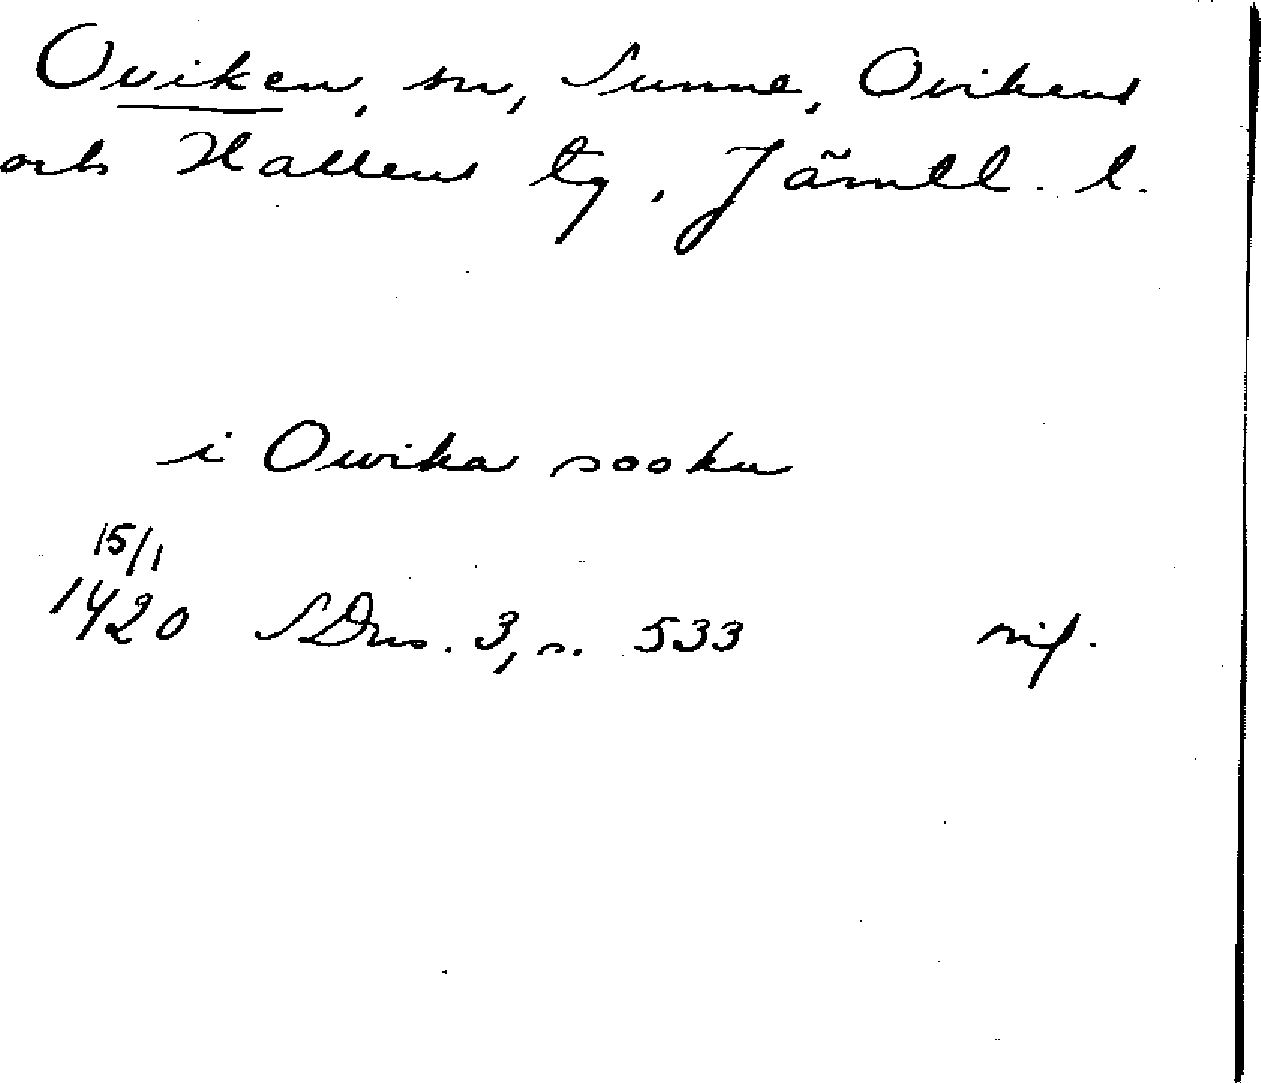 Oviken, sn, Sunne, Ovikens
och Hallens tg, Jämtl. l.
i Owika sookn
15/1
1420 SDns. 3, s. 533 nif.